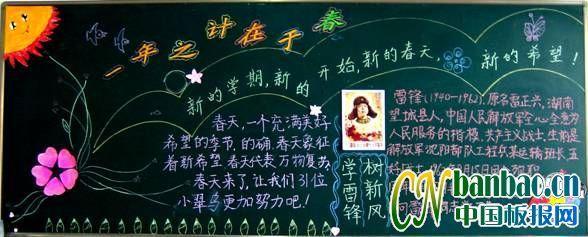 一年之计在于春
新的学期,新的开始,新的春天,新的希望!
春天,一个充满美好
希望的季节,的确,春天象征
着新希望,春天代表万物复苏
春天来了,让我们引位
小辈鸟更加努力吧!
学雷锋
树新风
雷锋(1940-1962),原名雷正兴,湖南
望城县人,中国人民解放军全心全意为
人民服务的楷模,共产主义战士,生前是
解放军沈阳部队工程兵某运输班长,五
CN banbao.cn
中国板报网